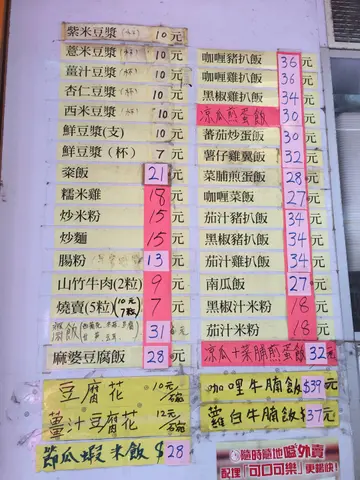 紫米豆漿(杯) 10元
薏米豆漿(杯) 10元
薑汁豆漿(杯) 10元
杏仁豆漿(杯) 10元
西米豆漿(杯) 10元
鮮豆漿(支) 10元
鮮豆漿(杯) 7元
齋飯 21元
糯米雞 18元
炒米粉 15元
炒麵 15元
腸粉 13元
山竹牛肉(2粒) 9元
燒賣(5粒)(10元7粒) 7元
飯 31元
麻婆豆腐飯 28元
豆腐花 10元/碗
薑汁豆腐花 12元/碗
節瓜蝦米飯 $28
咖喱豬扒飯 36元
咖喱雞扒飯 36元
黑椒雞扒飯 34元
凉瓜煎蛋飯 30元
蕃茄炒蛋飯 30元
薯仔雞翼飯 32元
菜脯煎蛋飯 28元
咖喱菜飯 27元
茄汁豬扒飯 34元
黑椒豬扒飯 34元
茄汁雞扒飯 34元
南瓜飯 27元
黑椒汁米粉 18元
茄汁米粉 18元
凉瓜+菜脯煎蛋飯 32元
咖哩牛腩飯 $39元
蘿白牛腩飯 $37元
隨時隨地嗌外賣
配埋「可口可樂」更暢快!